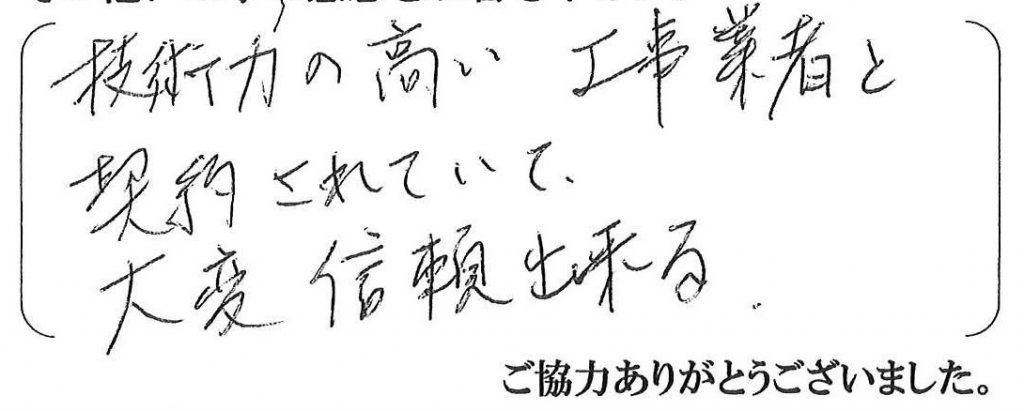 技術力の高い 工事業者と
契約されていて、
大変 信頼出来る.
ご協力ありがとうございました。